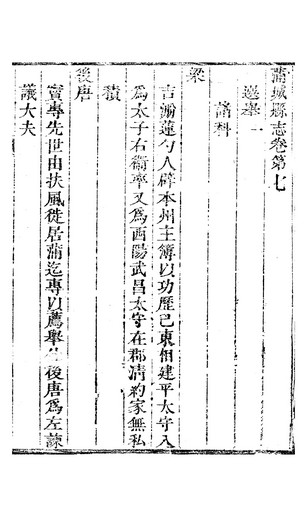 蒲城縣志卷第七
選舉一
諸科
梁
吉瀚蓮勺人辟本州主簿以功歷巴東相建平太守入
為太子右衛率又為西陽武昌太守在郡清約家無私
積
後唐
竇專先世由扶風徙居蒲迄專以薦舉仕後唐為左諫
議大夫